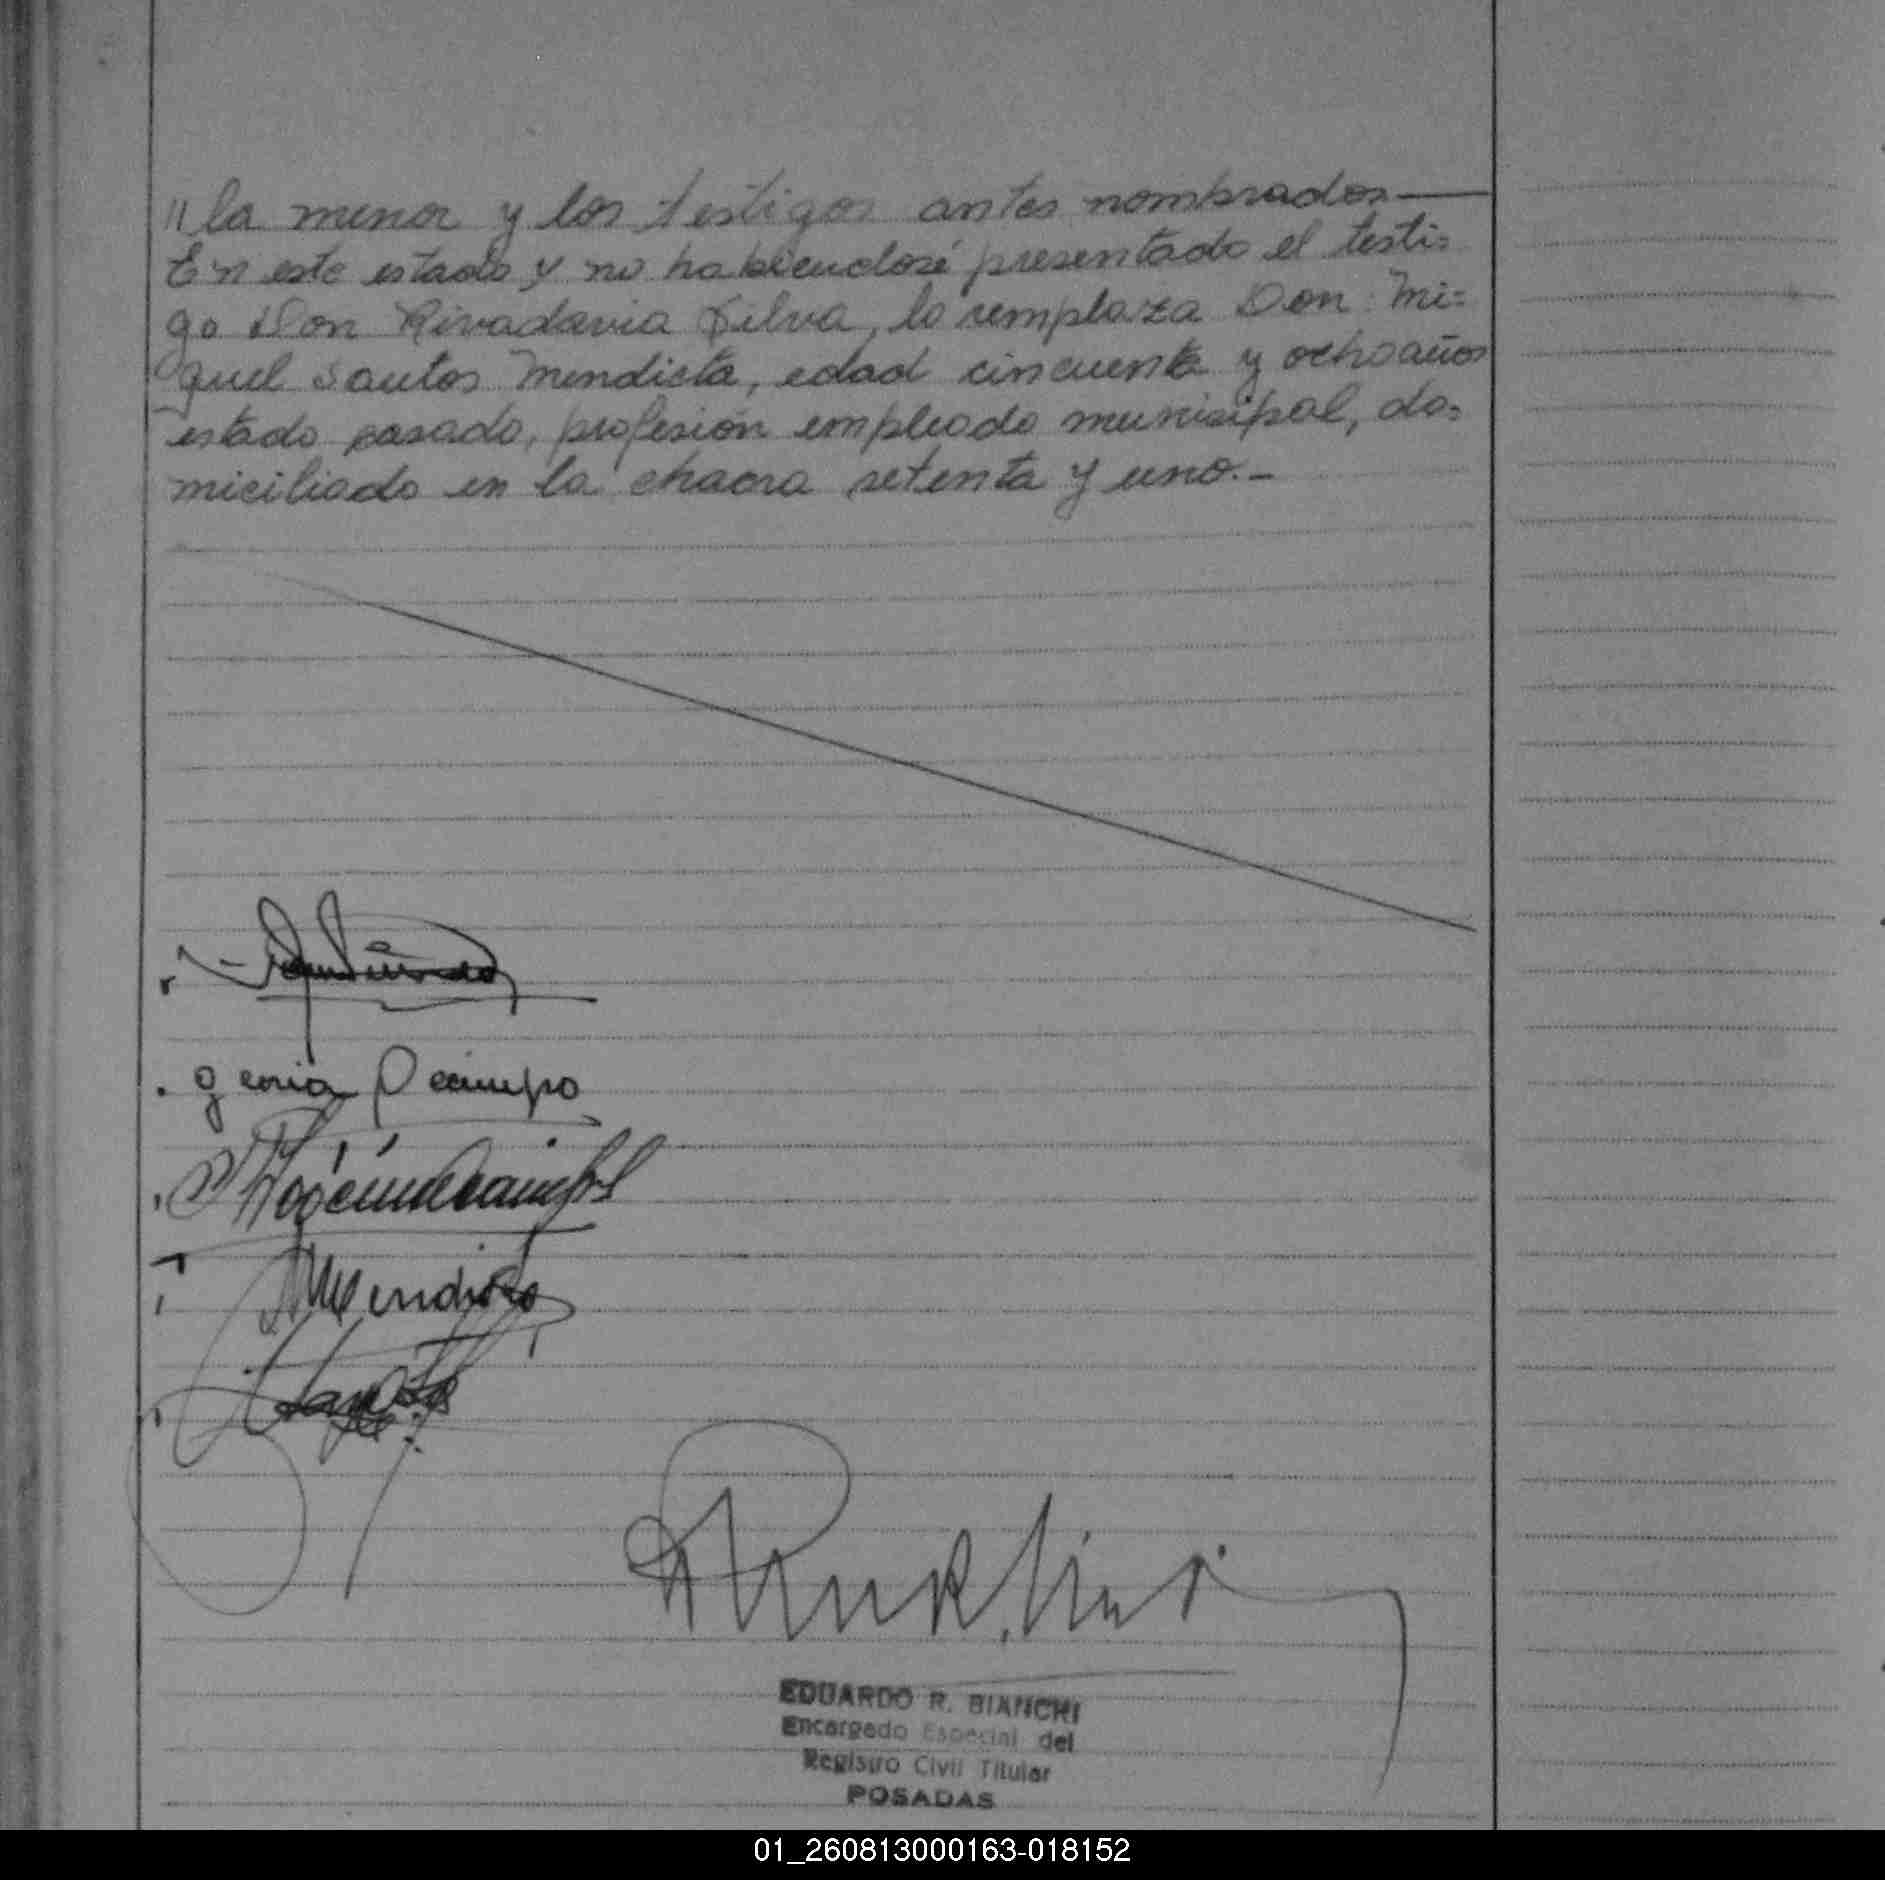 "la menor y los testigos antes nombrados —
En este estado y no habiendosé presentado el testi=
go Don Rivadavia Silva, lo remplaza Don Mi=
guel Santos Mendieta, edad cincuenta y ocho años
estado casado, profesión empleado munisipal, do=
miciliado en la chacra setenta y uno.-
Ocampo
Mendieta
EDUARDO R. BIANCHI
Encargado Especial del
Registro Civil Titular
POSADAS
01_260813000163-018152